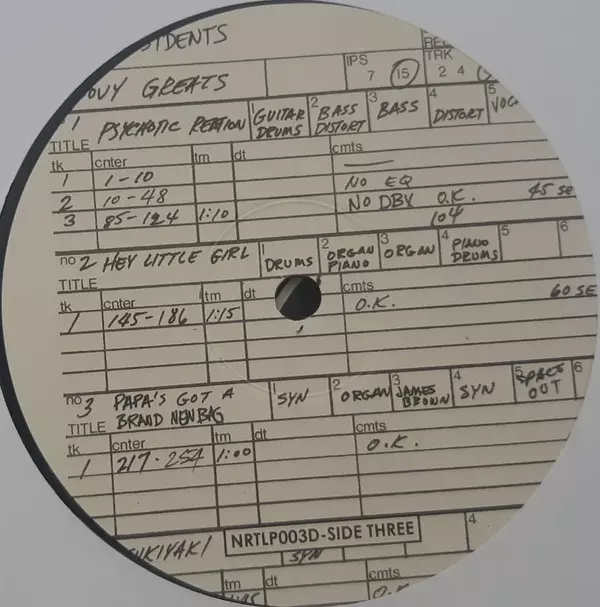 SIDENTS
IPS
TRK
OVY GREATS
7 15
2 4
1
TITLE PSYCHOTIC REATION
1 GUITAR DRUMS
2 BASS DISTORT
3 BASS
4 DISTORT
5 VOC
tk cnter tm dt cmts
1 1-10
2 10-48 NO EQ
3 85-124 1:10 NO DBX O.K. 45 SE
104
no 2 HEY LITTLE GIRL
1 DRUMS
2 ORGAN PIANO
3 ORGAN
4 PIANO DRUMS
5
6
TITLE
tk cnter tm dt cmts
1 145-186 1:15 O.K. 60 SE
no 3 PAPA'S GOT A
TITLE BRAND NEW BAG
1 SYN
2 ORGAN
3 JAMES BROWN
4 SYN
5 OUT
6
tk cnter tm dt cmts
1 217-254 1:00 O.K.
UKIYAKI
NRTLP003D-SIDE THREE
4
SYN
tm dt cmts
O.K.